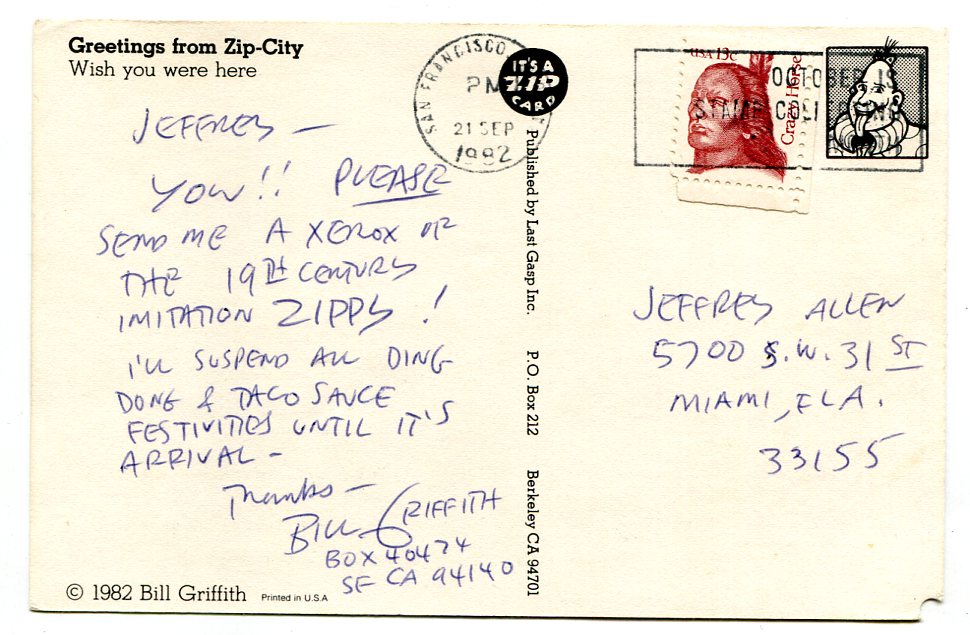 Greetings from Zip-City
Wish you were here
JEFFREY —
YOW!! PLEASE
SEND ME A XEROX OF
THE 19TH CENTURY
IMITATION ZIPPY!
I'LL SUSPEND ALL DING
DONG & TACO SAUCE
FESTIVITIES UNTIL IT'S
ARRIVAL -
Thanks —
BILL GRIFFITH
BOX 40474
SF CA 94140
© 1982 Bill Griffith Printed in U.S.A
SAN FRANCISCO
PM
21 SEP
1982
IT'S A
ZIP
CARD
Published by Last Gasp Inc. P.O. Box 212 Berkeley CA 94701
USA 13c
Crazy Horse
OCTOBER IS
STAMP COLLECTING
JEFFREY ALLEN
5700 S.W. 31 ST
MIAMI, FLA.
33155